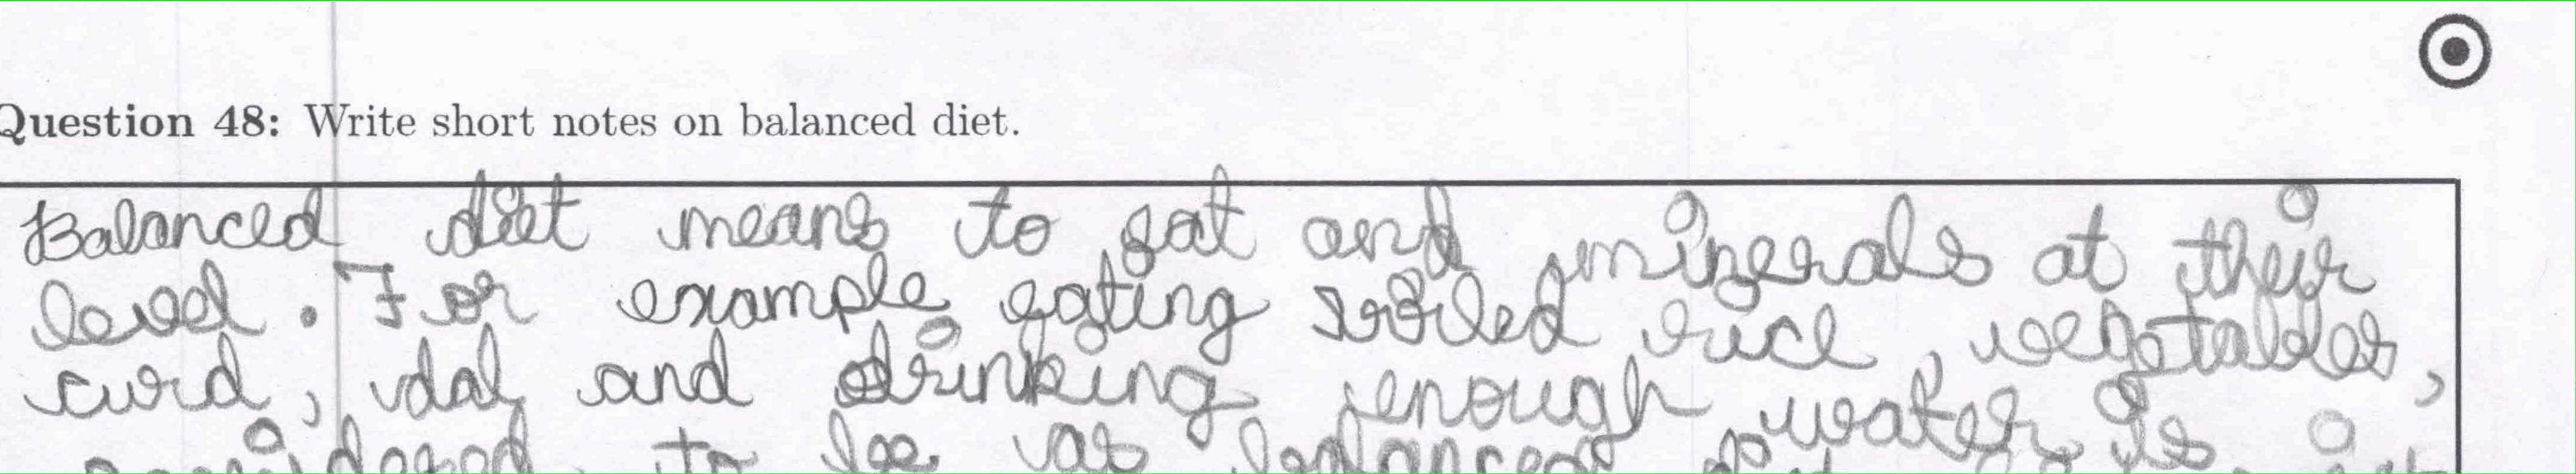 Question 48: Write short notes on balanced diet.
Balanced diet means to eat and minerals at their
level. For example eating boiled rice, vegetables,
curd, dal and drinking enough water is
considered to be as balanced